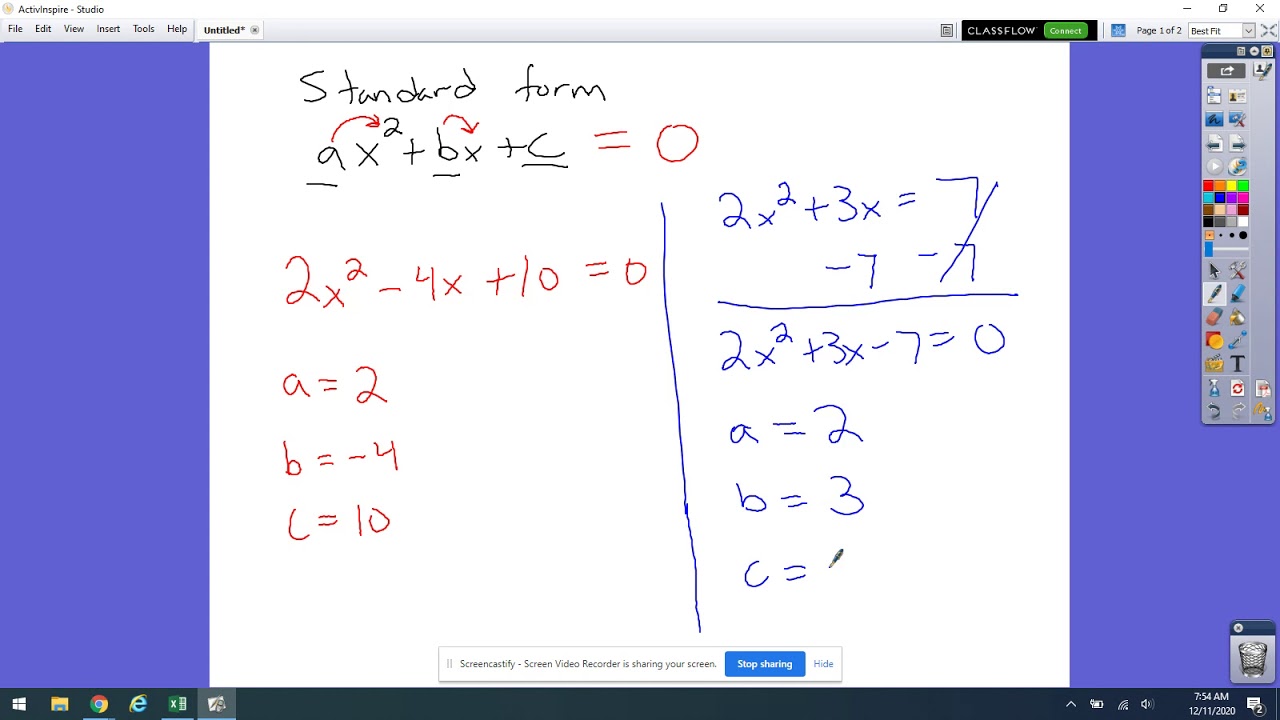 ActivInspire - Studio
File Edit View Insert Tools Help Untitled*
CLASSFLOW Connect Page 1 of 2 Best Fit
Standard form
ax² + bx + c = 0
2x² - 4x + 10 = 0
a = 2
b = -4
c = 10
2x² + 3x = 7
-7 -7
2x² + 3x - 7 = 0
a = 2
b = 3
c =
Screencastify - Screen Video Recorder is sharing your screen. Stop sharing Hide
7:54 AM
12/11/2020
2